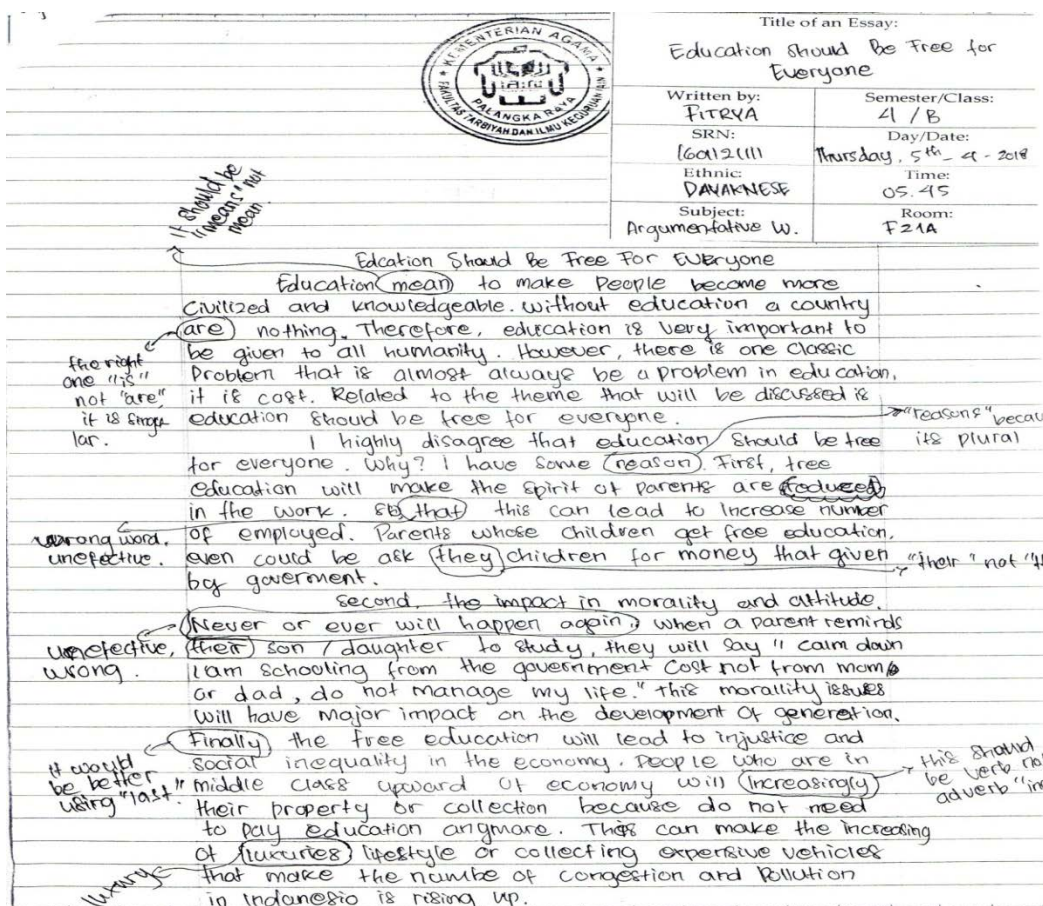 KEMENTERIAN AGAMA
PALANGKA RAYA
FAKULTAS TARBIYAH DAN ILMU KEGURUAN IAIN
Title of an Essay:
Education Should Be Free for
Everyone
Written by:
FITRYA
Semester/Class:
4 / B
SRN:
1601121111
Day/Date:
Thursday, 5th - 4 - 2018
Ethnic:
DAYAKNESE
Time:
05.45
Subject:
Argumentative W.
Room:
F21A
it should be
"means" not
mean.
Edcation Should Be Free For Everyone
Education mean to make People become more
Civilized and knowledgeable. without education a country
are nothing. Therefore, education is very important to
be given to all humanity. However, there is one Classic
Problem that is almost always be a problem in education,
it is cost. Related to the theme that will be discussed is
education should be free for everyone.
the right
one "is"
not "are",
it is singu
lar.
I highly disagree that education should be free
for everyone. Why? I have some reason. First, free
education will make the spirit of parents are reduced
in the work. so that this can lead to increase number
of employed. Parents whose children get free education,
even could be ask they children for money that given
by goverment.
"reasons" becau
its plural
wrong word,
unefective.
"their" not
second, the impact in morality and attitude.
Never or ever will happen again, when a parent reminds
their son / daughter to study, they will say "calm down
I am schooling from the government cost not from mom
or dad, do not manage my life." this morallity issues
will have major impact on the development of generation.
unefective,
wrong.
Finally the free education will lead to injustice and
social inequality in the economy. People who are in
middle class upward of economy will increasingly
their property or collection because do not need
to pay education anymore. This can make the increasing
of luxuries lifestyle or collecting expensive vehicles
that make the numbe of congestion and Pollution
in Indonesia is rising up.
it would
be better
using "last."
this should
be verb no
adverb "in
luxurys